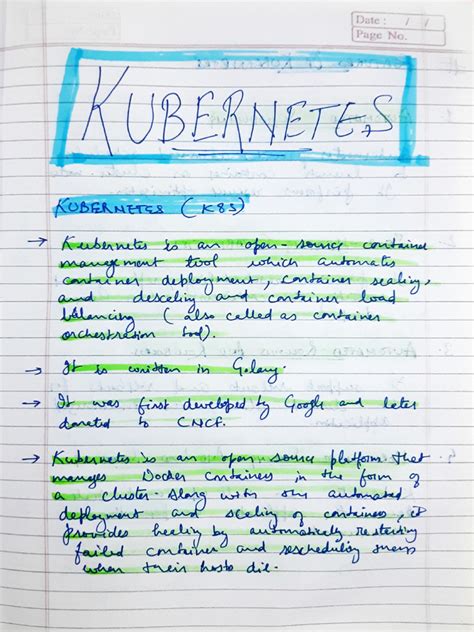 Date : / /
Page No.
KUBERNETES
KUBERNETES (K8S)
→ Kubernetes is an open-source container
management tool which automates
container deployment, container scaling,
and descaling and container load
balancing (also called as container
orchestration tool).
→ It is written in Golang.
→ It was first developed by Google and later
donated to CNCF.
→ Kubernetes is an open-source platform that
manages Docker containers in the form of
a cluster. Along with automated
deployment and scaling of containers, it
provides healing by automatically restarting
failed container and rescheduling them
when their hosts die.